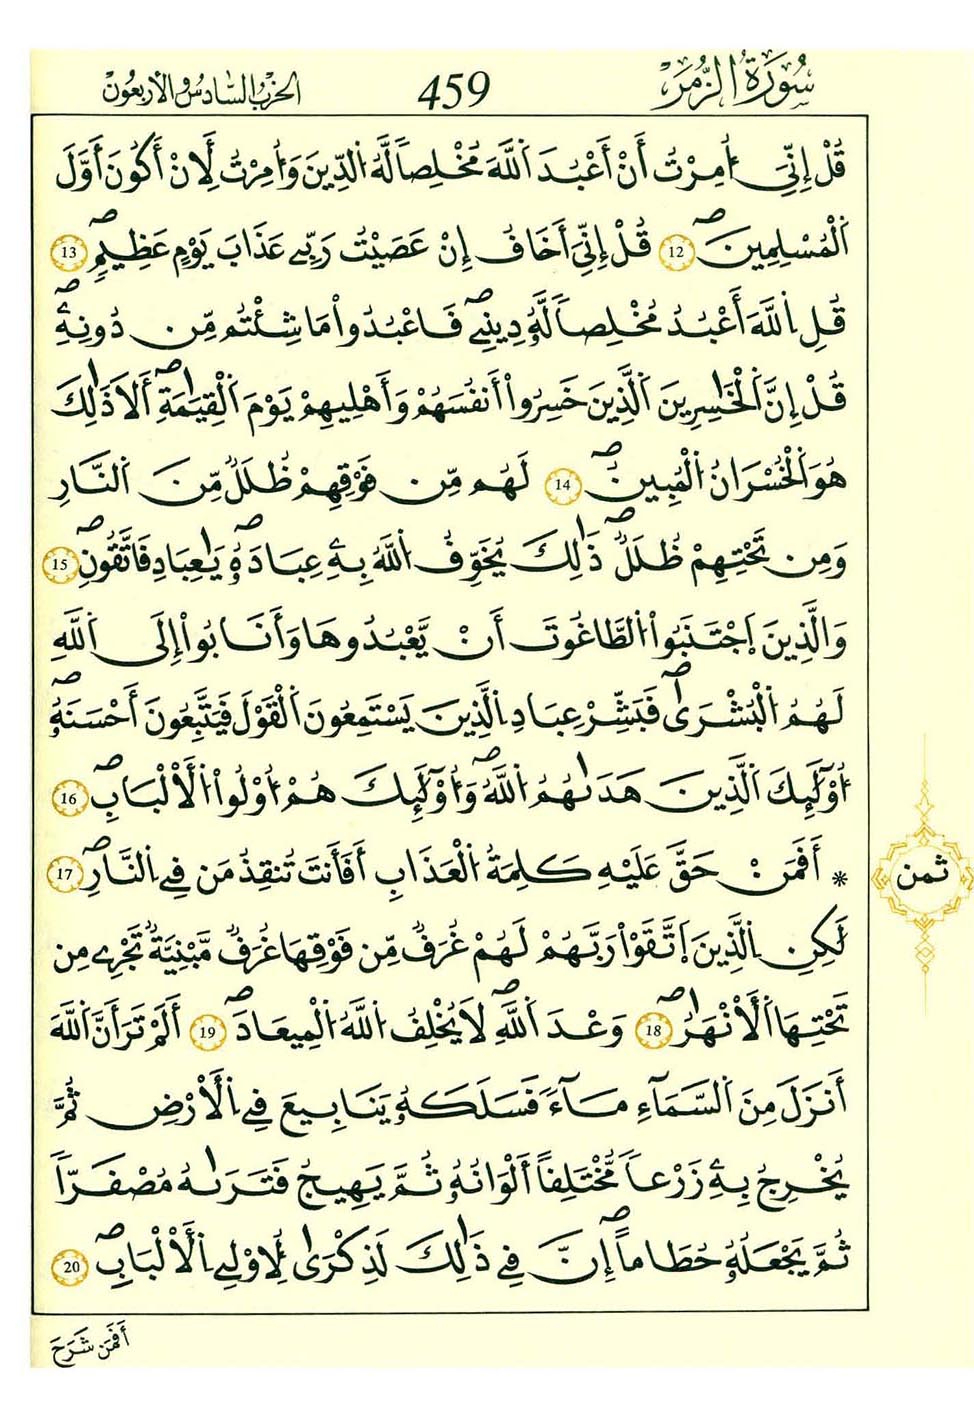 سُورَةُ الزُّمَر 459 الحزب السادس والأربعون
قُلِ اِنِّيَ أُمِرْتُ أَنْ أَعْبُدَ اَللَّهَ مُخْلِصاً لَّهُ الدِّينَ وَأُمِرْتُ لِأَنْ أَكُونَ أَوَّلَ
اَلْمُسْلِمِينَۖ 12 قُلِ اِنِّيَ أَخَافُ إِنْ عَصَيْتُ رَبِّے عَذَابَ يَوْمٍ عَظِيمٍۖ 13
قُلِ اِللَّهَ أَعْبُدُ مُخْلِصاً لَّهُۥ دِينِےۖ فَاعْبُدُواْ مَا شِئْتُم مِّن دُونِهِۦۖ
قُلِ اِنَّ اَلْخَٰسِرِينَ اَلَّذِينَ خَسِرُواْ أَنفُسَهُمْ وَأَهْلِيهِمْ يَوْمَ اَلْقِيَٰمَةِۖ أَلَا ذَٰلِكَ
هُوَ اَلْخُسْرَانُ اُلْمُبِينُۖ 14 لَهُم مِّن فَوْقِهِمْ ظُلَلٌ مِّنَ اَلنَّارِ
وَمِن تَحْتِهِمْ ظُلَلٌۖ ذَٰلِكَ يُخَوِّفُ اُللَّهُ بِهِۦ عِبَادَهُۥۖ يَٰعِبَادِ فَاتَّقُونِۖ 15
وَالَّذِينَ اَجْتَنَبُواْ اُلطَّاغُوتَ أَنْ يَّعْبُدُوهَا وَأَنَابُواْ إِلَى اَللَّهِ
لَهُمُ اُلْبُشْرَىٰۖ فَبَشِّرْ عِبَادِ اِلَّذِينَ يَسْتَمِعُونَ اَلْقَوْلَ فَيَتَّبِعُونَ أَحْسَنَهُۥۖ
أُوْلَٰٓئِكَ اَلَّذِينَ هَدَىٰهُمُ اُللَّهُۖ وَأُوْلَٰٓئِكَ هُمْ أُوْلُواْ اُلْأَلْبَٰبِۖ 16
* أَفَمَنْ حَقَّ عَلَيْهِ كَلِمَةُ اُلْعَذَابِ أَفَأَنتَ تُنقِذُ مَن فِے اِلنَّارِۖ 17
ثمن
لَٰكِنِ اِلَّذِينَ اَتَّقَوْاْ رَبَّهُمْ لَهُمْ غُرَفٌ مِّن فَوْقِهَا غُرَفٌ مَّبْنِيَّةٌ تَجْرِے مِن
تَحْتِهَا اَلْأَنْهَٰرُۖ 18 وَعْدَ اَللَّهِۖ لَا يُخْلِفُ اُللَّهُ اُلْمِيعَادَۖ 19 أَلَمْ تَرَ أَنَّ اَللَّهَ
أَنزَلَ مِنَ اَلسَّمَآءِ مَآءً فَسَلَكَهُۥ يَنَٰبِيعَ فِے اِلْأَرْضِ ثُمَّ
يُخْرِجُ بِهِۦ زَرْعاً مُّخْتَلِفاً أَلْوَٰنُهُۥ ثُمَّ يَهِيجُ فَتَرَىٰهُ مُصْفَرّاً
ثُمَّ يَجْعَلُهُۥ حُطَٰماًۖ إِنَّ فِے ذَٰلِكَ لَذِكْرَىٰ لِأُوْلِے اِلْأَلْبَٰبِۖ 20
أَفَمَن شَرَحَ